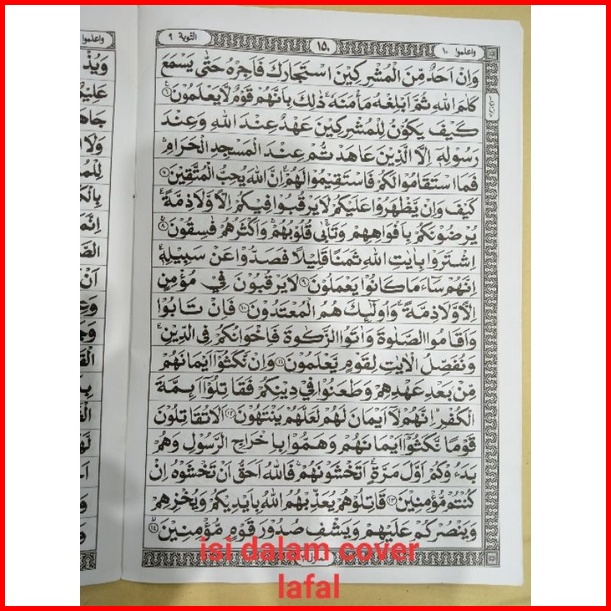 التوبة ٩
١٥٠
واعلموا ١٠
وَاِنْ اَحَدٌ مِّنَ الْمُشْرِكِيْنَ اسْتَجَارَكَ فَاَجِرْهُ حَتّٰى يَسْمَعَ
كَلٰمَ اللّٰهِ ثُمَّ اَبْلِغْهُ مَأْمَنَهٗ ذٰلِكَ بِاَنَّهُمْ قَوْمٌ لَّا يَعْلَمُوْنَ ٦
كَيْفَ يَكُوْنُ لِلْمُشْرِكِيْنَ عَهْدٌ عِنْدَ اللّٰهِ وَعِنْدَ
رَسُوْلِهٖ اِلَّا الَّذِيْنَ عَاهَدْتُّمْ عِنْدَ الْمَسْجِدِ الْحَرَامِ
فَمَا اسْتَقَامُوْا لَكُمْ فَاسْتَقِيْمُوْا لَهُمْ اِنَّ اللّٰهَ يُحِبُّ الْمُتَّقِيْنَ ٧
كَيْفَ وَاِنْ يَّظْهَرُوْا عَلَيْكُمْ لَا يَرْقُبُوْا فِيْكُمْ اِلًّا وَّلَا ذِمَّةً
يُرْضُوْنَكُمْ بِاَفْوَاهِهِمْ وَتَأْبٰى قُلُوْبُهُمْ وَاَكْثَرُهُمْ فٰسِقُوْنَ ٨
اِشْتَرَوْا بِاٰيٰتِ اللّٰهِ ثَمَنًا قَلِيْلًا فَصَدُّوْا عَنْ سَبِيْلِهٖ
اِنَّهُمْ سَآءَ مَا كَانُوْا يَعْمَلُوْنَ ٩ لَا يَرْقُبُوْنَ فِيْ مُؤْمِنٍ
اِلًّا وَّلَا ذِمَّةً وَاُولٰٓئِكَ هُمُ الْمُعْتَدُوْنَ ١٠ فَاِنْ تَابُوْا
وَاَقَامُوا الصَّلٰوةَ وَاٰتَوُا الزَّكٰوةَ فَاِخْوَانُكُمْ فِى الدِّيْنِ
وَنُفَصِّلُ الْاٰيٰتِ لِقَوْمٍ يَّعْلَمُوْنَ ١١ وَاِنْ نَّكَثُوْٓا اَيْمَانَهُمْ
مِّنْۢ بَعْدِ عَهْدِهِمْ وَطَعَنُوْا فِيْ دِيْنِكُمْ فَقَاتِلُوْٓا اَىِٕمَّةَ
الْكُفْرِ اِنَّهُمْ لَآ اَيْمَانَ لَهُمْ لَعَلَّهُمْ يَنْتَهُوْنَ ١٢ اَلَا تُقَاتِلُوْنَ
قَوْمًا نَّكَثُوْٓا اَيْمَانَهُمْ وَهَمُّوْا بِاِخْرَاجِ الرَّسُوْلِ وَهُمْ
بَدَءُوْكُمْ اَوَّلَ مَرَّةٍ اَتَخْشَوْنَهُمْ فَاللّٰهُ اَحَقُّ اَنْ تَخْشَوْهُ اِنْ
كُنْتُمْ مُّؤْمِنِيْنَ ١٣ قَاتِلُوْهُمْ يُعَذِّبْهُمُ اللّٰهُ بِاَيْدِيْكُمْ وَيُخْزِهِمْ
وَيَنْصُرْكُمْ عَلَيْهِمْ وَيَشْفِ صُدُوْرَ قَوْمٍ مُّؤْمِنِيْنَ ١٤
isi dalam cover
lafal